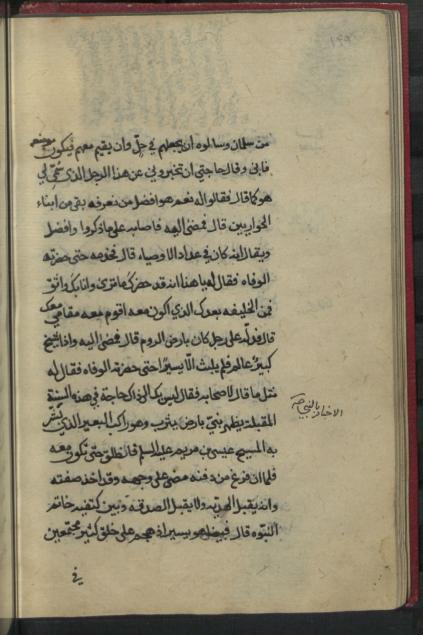 ١٤٩
من سلمان وسالوه ان يجعلهم في حل وان يقيم معهم فيكون موضعه
فابى وقال حاجتي ان تخبروني عن هذا الرجل الذي سمي لي
هو كما قال فقالوا له نعم هو افضل من نعرفه بقي من ابناء
الحواريين قال فمضى اليه فاصابه على ما ذكروا وافضل
ويقال انه كان في عداد الاوصياء قال فخدمه حتى حضرته
الوفاه فقال له يا هذا انه قد حضرك ما ترى وانا بك واثق
فمن الخليفه بعدك الذي اكون معه اقوم معه مقامي معك
قال فدله على رجل كان بارض الروم قال فمضى اليه واذا شيخ
كبير عالم فلم يلبث الا يسيرا حتى حضرته الوفاه فقال له
مثل ما قال لاصحابه فقال ليس بك الى ذاك حاجة في هذه السنة
المقبلة يظهر نبي بارض يثرب وهو راكب البعير الذي بشر
به المسيح عيسى بن مريم عليه السلم فانطلق حتى تكون معه
فلما ان فرغ من دفنه مضى على وجهه وقد اخذ صفته
وانه يقبل الهديه ولا يقبل الصدقه وبين كتفيه خاتم
النبوه قال فبينما هو يسير اذ هجم على خلق كثير مجتمعين
الاخبار بالنبي
في